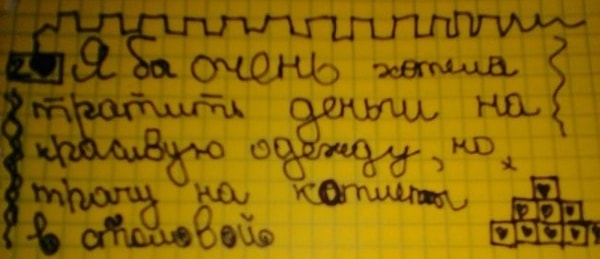 2 Я ба очень хотела
тратить деньги на
красивую одежду, но
трачу на котлеты
в столовой